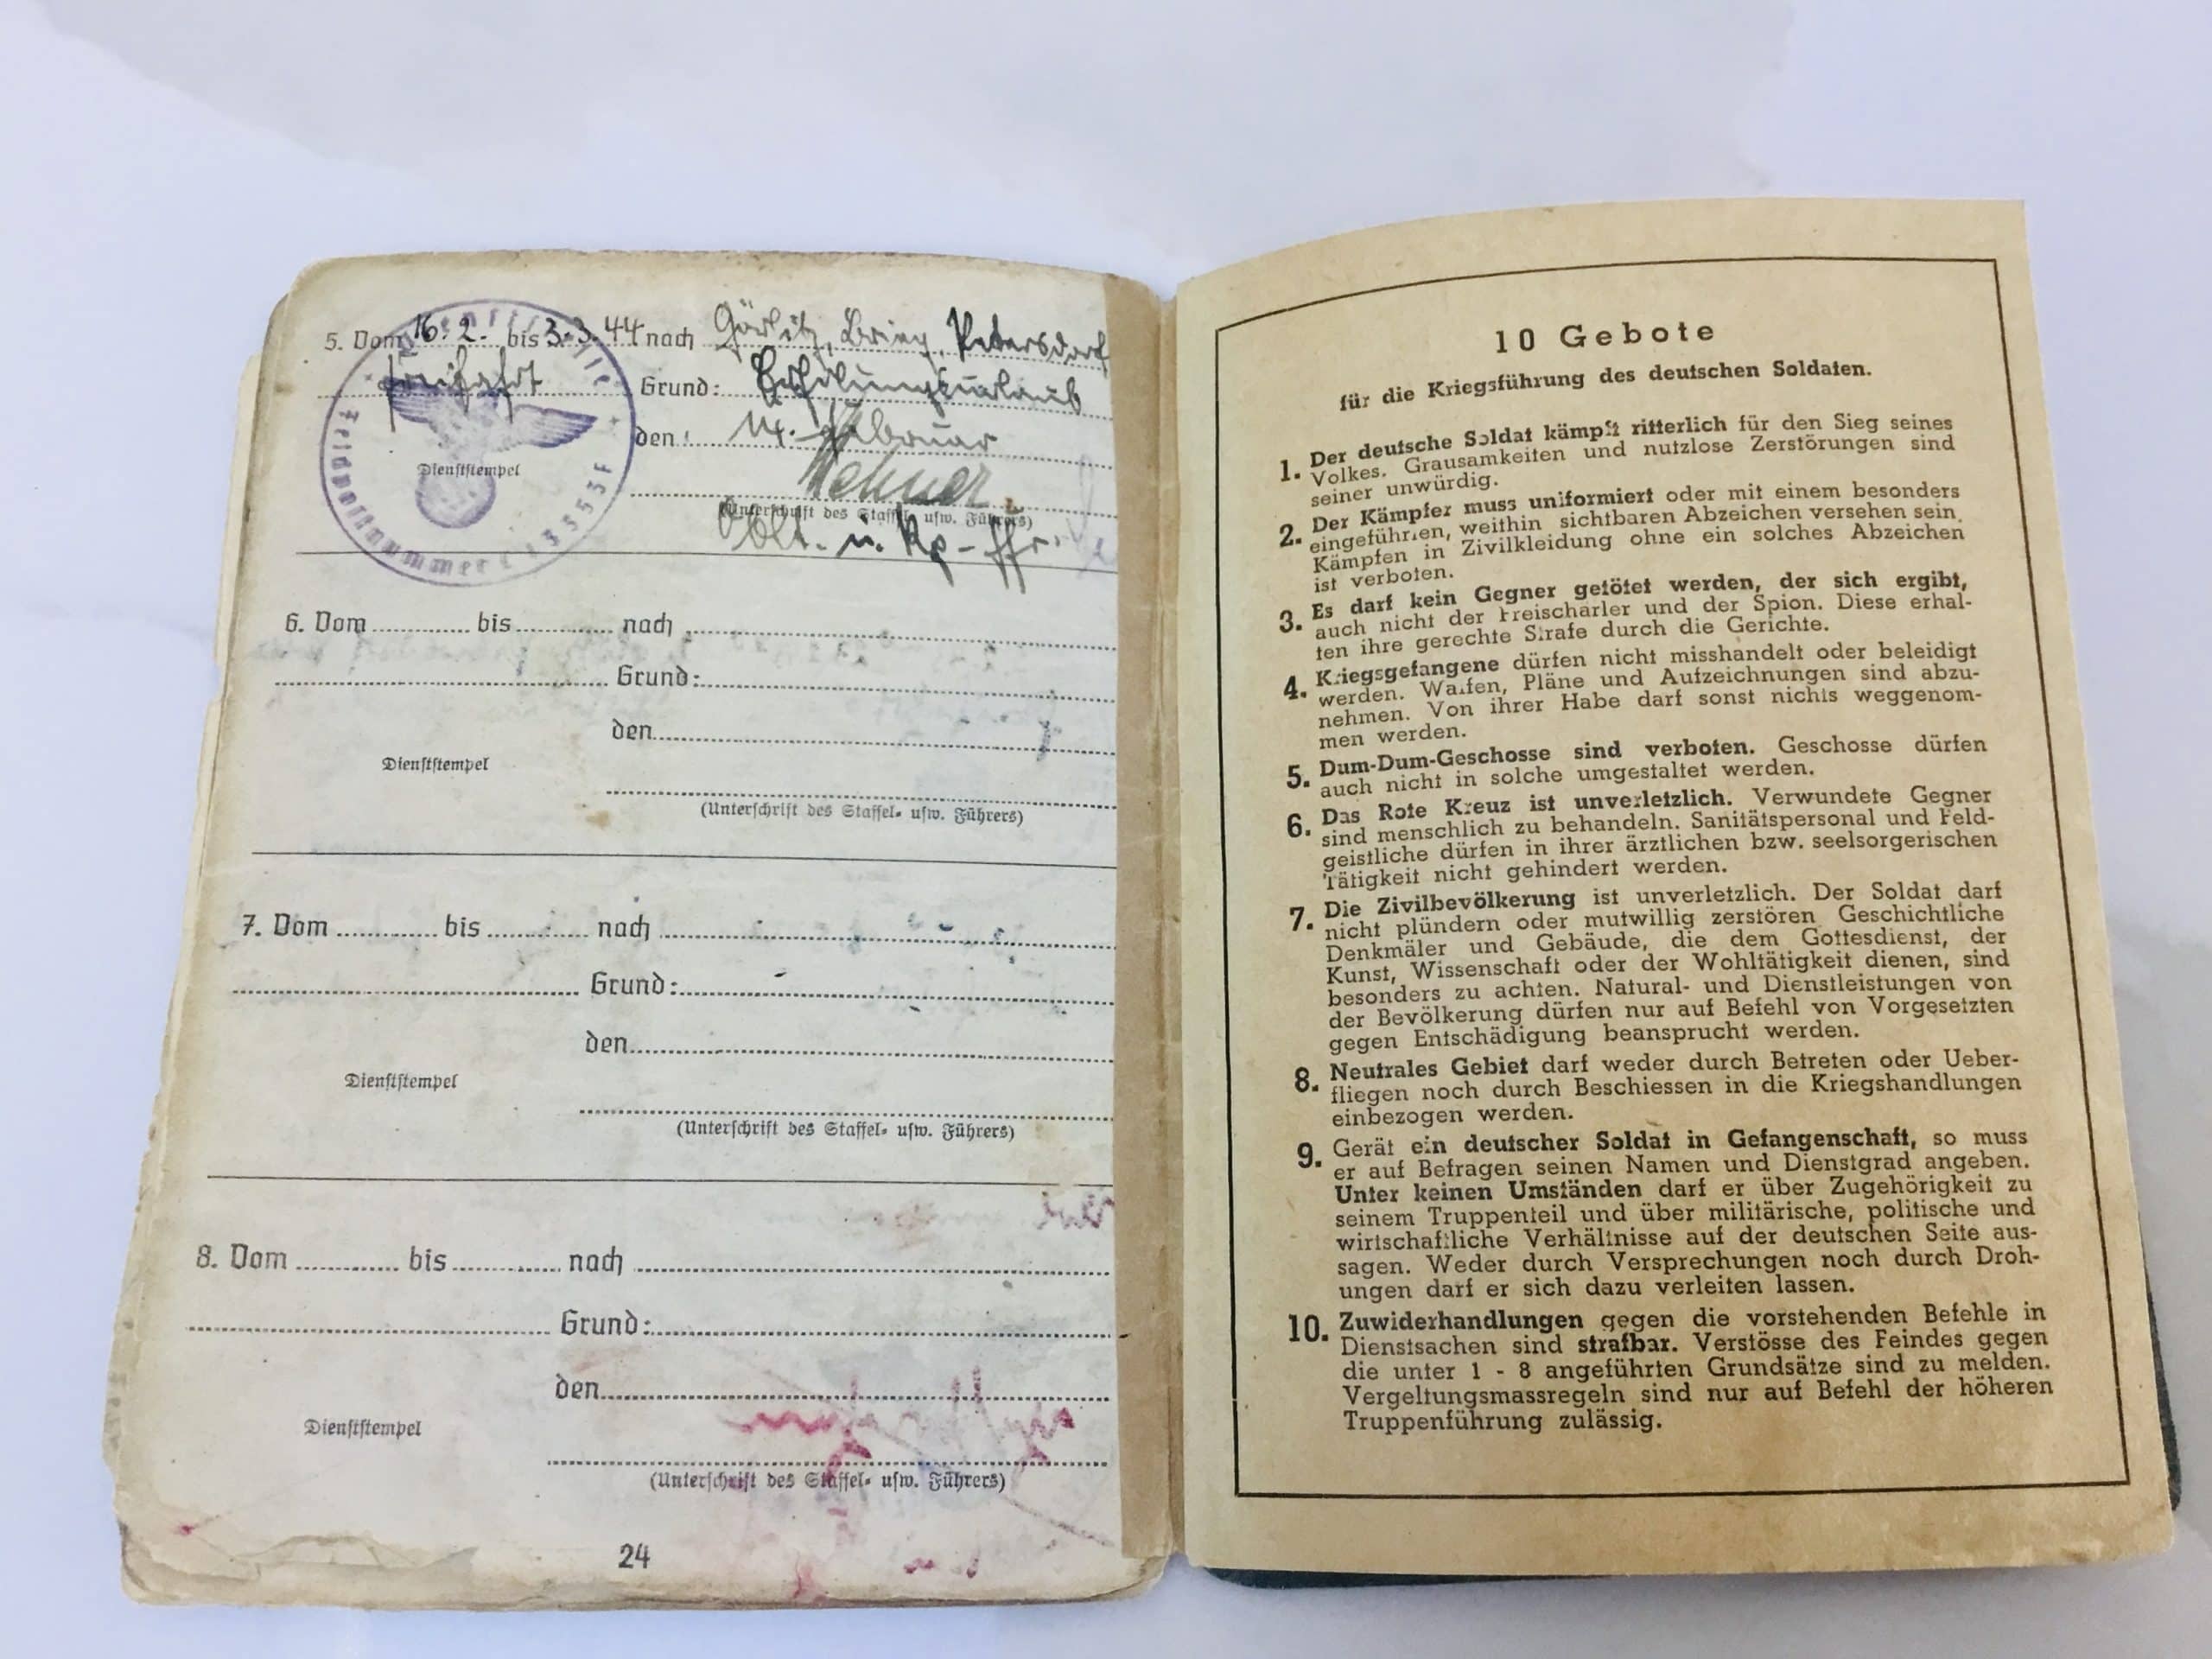 5. Vom 16. 2. bis 3. 3. 44 nach Görlitz, Brieg, Petersdorf
Freifahrt Grund: Erholungsurlaub
den 14. Februar
Dienststempel
Feldpostnummer
(Unterschrift des Staffel- usw. Führers)
Oblt. u. Kp-Fhr.
6. Vom bis nach
Grund:
den
Dienststempel
(Unterschrift des Staffel- usw. Führers)
7. Vom bis nach
Grund:
den
Dienststempel
(Unterschrift des Staffel- usw. Führers)
8. Vom bis nach
Grund:
den
Dienststempel
(Unterschrift des Staffel- usw. Führers)
24
10 Gebote
für die Kriegsführung des deutschen Soldaten.
1. Der deutsche Soldat kämpft ritterlich für den Sieg seines
Volkes. Grausamkeiten und nutzlose Zerstörungen sind
seiner unwürdig.
2. Der Kämpfer muss uniformiert oder mit einem besonders
eingeführten, weithin sichtbaren Abzeichen versehen sein.
Kämpfen in Zivilkleidung ohne ein solches Abzeichen
ist verboten.
3. Es darf kein Gegner getötet werden, der sich ergibt,
auch nicht der Freischärler und der Spion. Diese erhal-
ten ihre gerechte Strafe durch die Gerichte.
4. Kriegsgefangene dürfen nicht misshandelt oder beleidigt
werden. Waffen, Pläne und Aufzeichnungen sind abzu-
nehmen. Von ihrer Habe darf sonst nichts weggenom-
men werden.
5. Dum-Dum-Geschosse sind verboten. Geschosse dürfen
auch nicht in solche umgestaltet werden.
6. Das Rote Kreuz ist unverletzlich. Verwundete Gegner
sind menschlich zu behandeln. Sanitätspersonal und Feld-
geistliche dürfen in ihrer ärztlichen bzw. seelsorgerischen
Tätigkeit nicht gehindert werden.
7. Die Zivilbevölkerung ist unverletzlich. Der Soldat darf
nicht plündern oder mutwillig zerstören Geschichtliche
Denkmäler und Gebäude, die dem Gottesdienst, der
Kunst, Wissenschaft oder der Wohltätigkeit dienen, sind
besonders zu achten. Natural- und Dienstleistungen von
der Bevölkerung dürfen nur auf Befehl von Vorgesetzten
gegen Entschädigung beansprucht werden.
8. Neutrales Gebiet darf weder durch Betreten oder Ueber-
fliegen noch durch Beschiessen in die Kriegshandlungen
einbezogen werden.
9. Gerät ein deutscher Soldat in Gefangenschaft, so muss
er auf Befragen seinen Namen und Dienstgrad angeben.
Unter keinen Umständen darf er über Zugehörigkeit zu
seinem Truppenteil und über militärische, politische und
wirtschaftliche Verhältnisse auf der deutschen Seite aus-
sagen. Weder durch Versprechungen noch durch Droh-
ungen darf er sich dazu verleiten lassen.
10. Zuwiderhandlungen gegen die vorstehenden Befehle in
Dienstsachen sind strafbar. Verstösse des Feindes gegen
die unter 1 - 8 angeführten Grundsätze sind zu melden.
Vergeltungsmassregeln sind nur auf Befehl der höheren
Truppenführung zulässig.